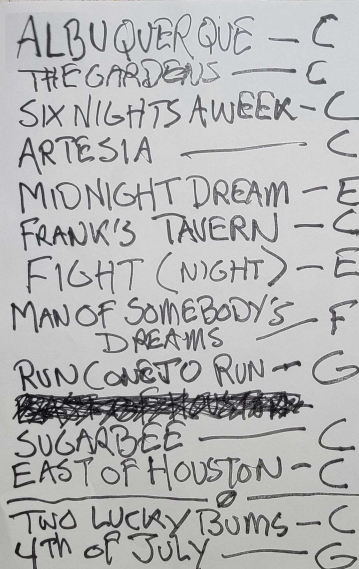 ALBUQUERQUE — C
THE GARDENS — C
SIX NIGHTS A WEEK - C
ARTESIA — C
MIDNIGHT DREAM — E
FRANK'S TAVERN - C
FIGHT (NIGHT) - E
MAN OF SOMEBODY'S
DREAMS — F
RUN CONEJO RUN - G
SUGARBEE — C
EAST OF HOUSTON - C
TWO LUCKY BUMS - C
4TH OF JULY — G